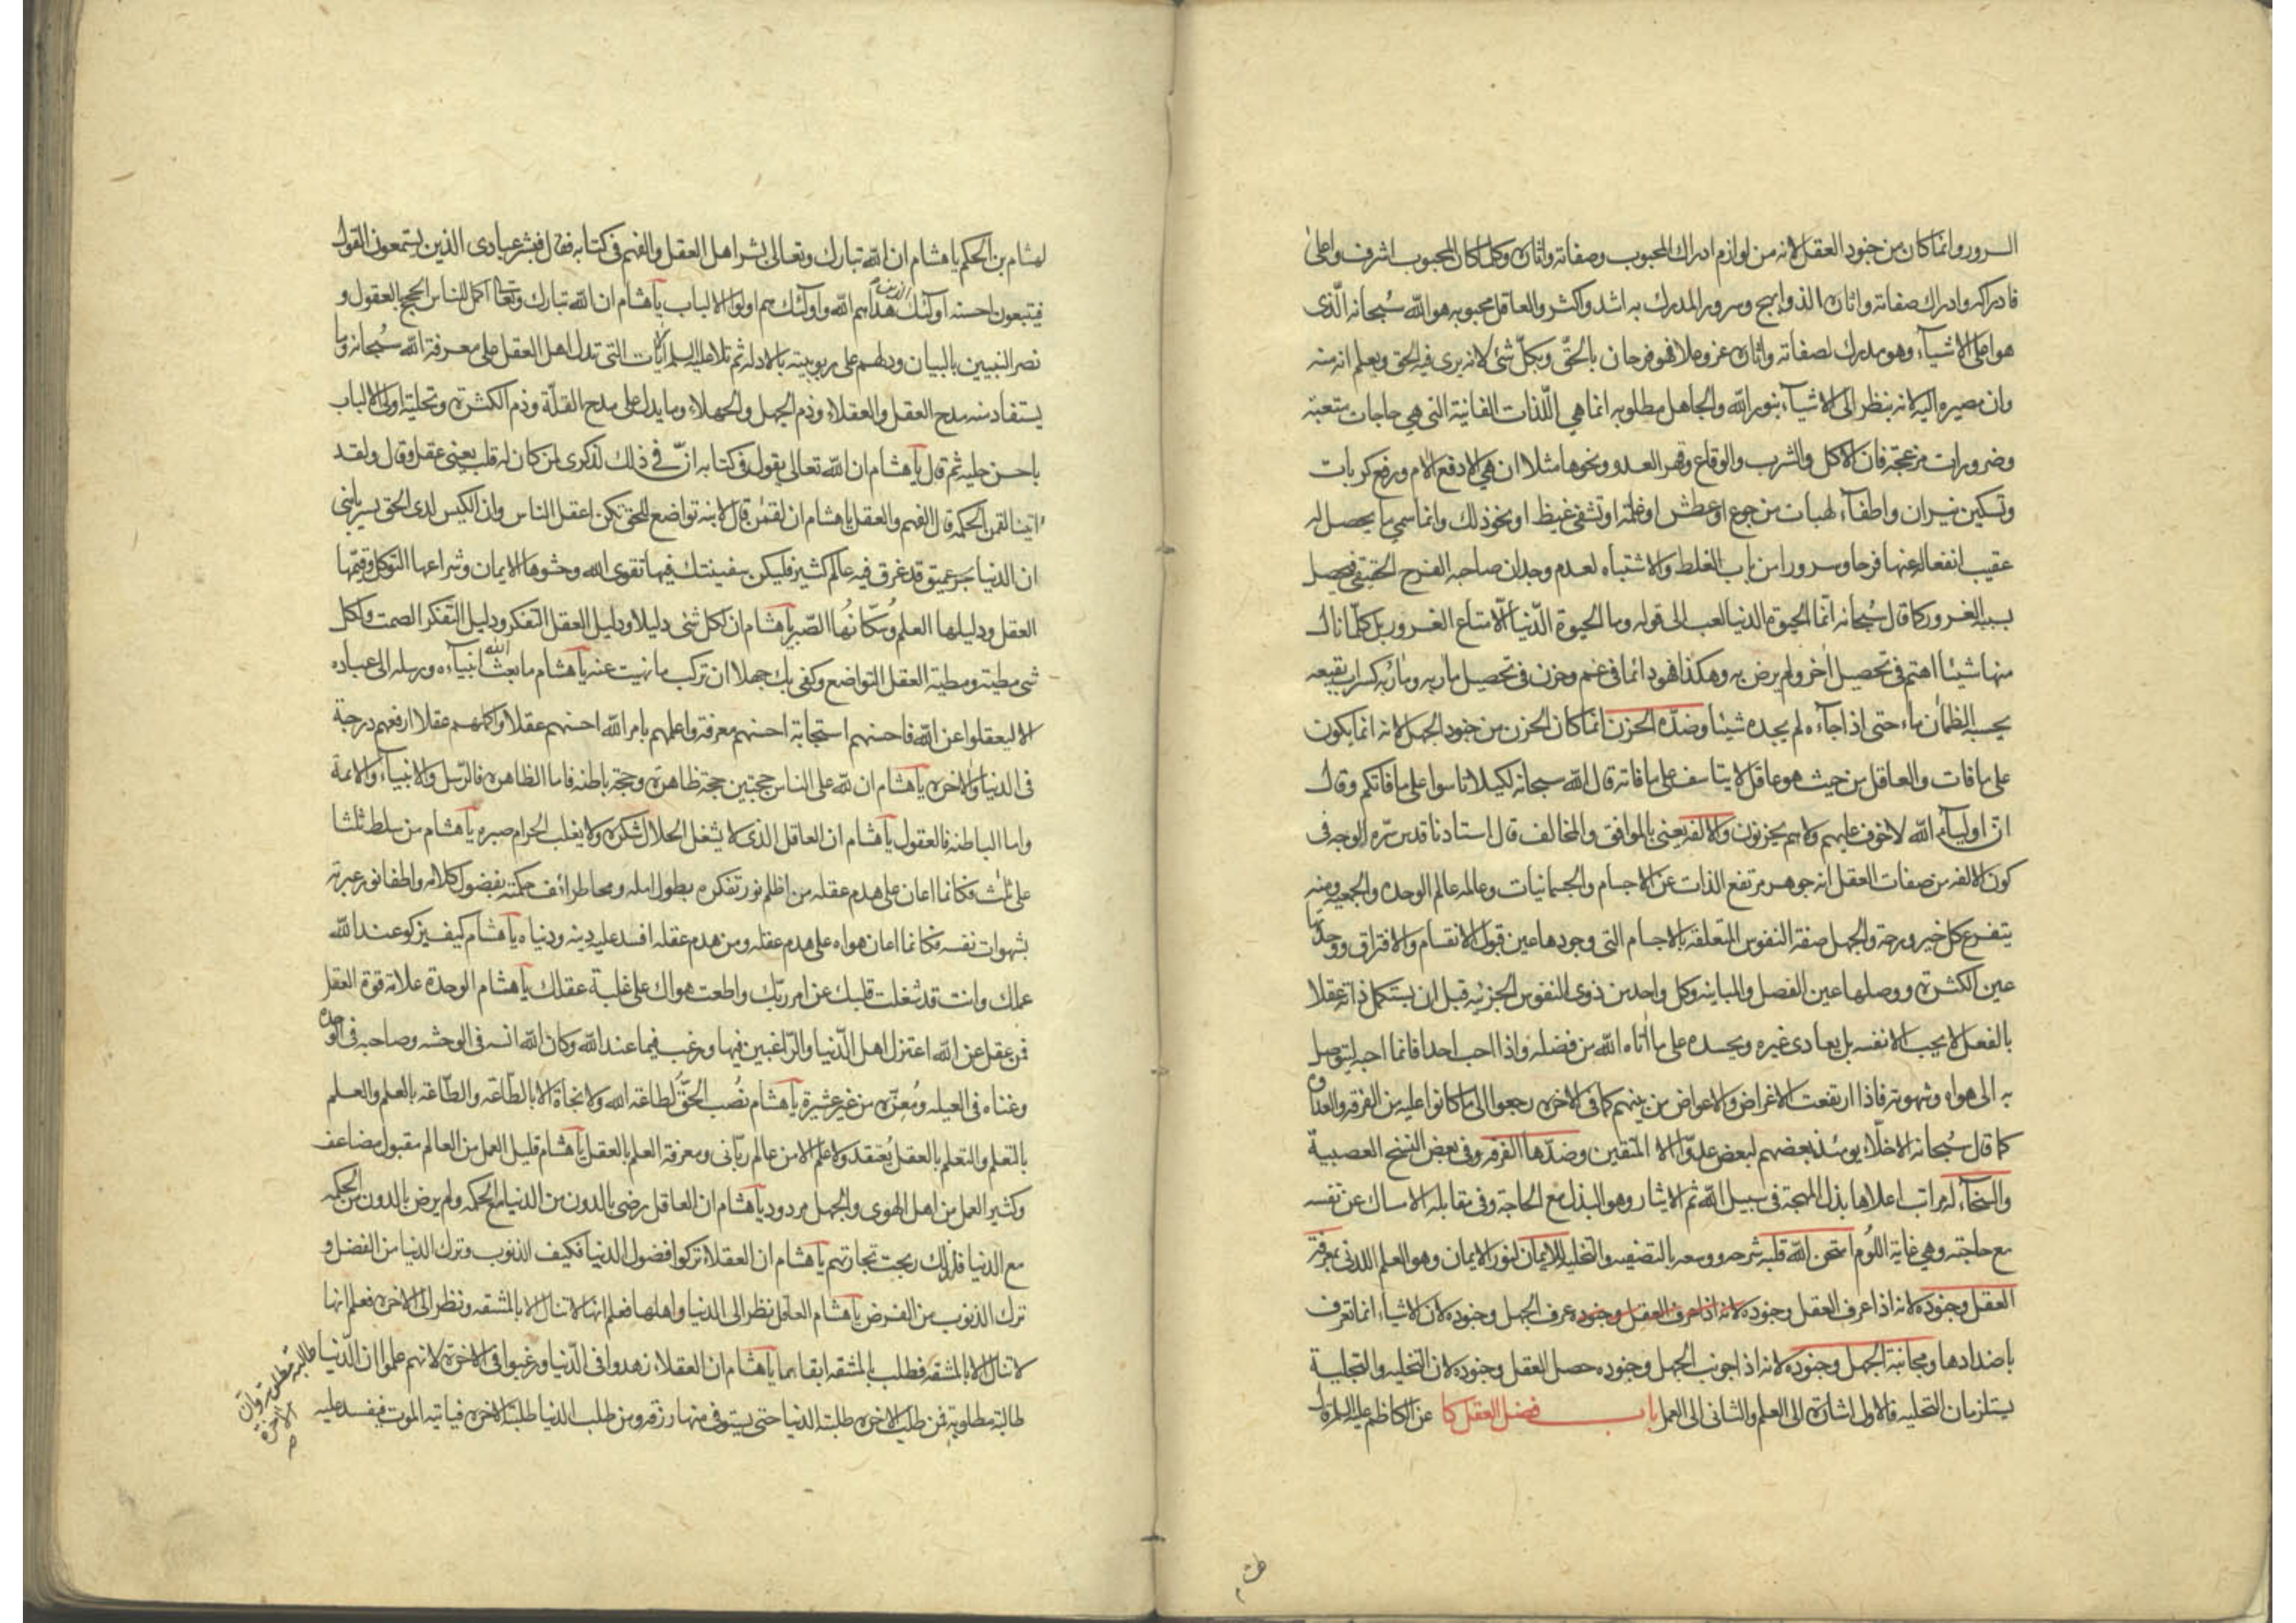 السرور وانما كان من جنود العقل لانه من لوازم ادراك المحبوب وصفاته واثاره وكلما كان المحبوب اشرف واعلى
فادراكه وادراك صفاته واثاره الذ وابهج وسرور المدرك به اشد واكثر والعاقل محبوبه هو الله سُبحانه الّذى
هو اعلى الاشيآء وهو مدرك لصفاته واثاره عز وعلا فهو فرحان بالحقّ وبكلّ شئ لانه يرى فيه الحق ويعلم انه منه
وان مصيره اليه لانه ينظر الى الاشيآء بنور الله والجاهل مطلوبه انما هى اللّذات الفانية التى هى حاجات متعبة
وضرورات مزعجة فان الاكل والشرب والوقاع وقهر العدو ونحوها مثلا ان هى الا دفع الام ورفع كربات
وتسكين نيران واطفآء لهبات من جوع او عطش او غلمة او تشفى غيظ او نحو ذلك وانما سمى ما يحصل له
عقيب انفعاله عنها فرحا وسرورا من باب الغلط والاشتباه لعدم وجدان صاحبه الفرح الحقيقى فيحصل
بسببه الغرور كما قال سُبحانه انّما الحيوة الدنيا لعب الى قوله وما الحيوة الدّنيا الّا متاع الغرور بل كلّما نال
منها شيئا اهتم فى تحصيل اخر ولم يرض به وهكذا فهو دائما فى غم وحزن فى تحصيل ماربه وماربه كسراب بقيعه
يحسبه الظمان ماء حتى اذا جآءه لم يجده شيئا وضدّه الحزن انما كان الحزن من جنود الجهل لانه انما يكون
على ما فات والعاقل من حيث هو عاقل لا يتاسف على ما فاته قال الله سبحانه لكيلا تاسوا على ما فاتكم وقال
انّ اوليآء الله لا خوف عليهم ولا هم يحزنون والالفه يعنى بالموافق والمخالف قال استادنا قدس سّره الوجه فى
كون الالفه من صفات العقل انه جوهر مرتفع الذات عن الاجسام والجسمانيات وعالمه عالم الوحده والجمعيه ومنه
يتفرع كل خير ورحمة والجهل صفة النفوس المتعلقه بالاجسام التى وجودها عين قبول الانقسام والافتراق ووحدتها
عين الكثرة ووصلها عين الفصل والمباينه وكل واحد من ذوى النفوس الجزئيه قبل ان يستكمل ذاته عقلا
بالفعل لا يحب الا نفسه بل يعادى غيره ويحسده على ما اتاه الله من فضله واذا احب احدا فانما احبه ليتوصل
به الى هواه وشهوته فاذا ارتفعت الاغراض والاعواض من بينهم كما فى الاخره رجعوا الى ما كانوا عليه من الفرقه والعداوه
كما قال سُبحانه الاخلّاء يومئذ بعضهم لبعض عدوّ الا المتقين وضدّها الفرقه وفى بعض النسخ العصبية
والسخآء له مراتب اعلاها بذل المهجة فى سبيل الله ثم الايثار وهو البذل مع الحاجة وفى مقابله الامساك عن نفسه
مع حاجته وهى غاية اللؤم امتحن الله قلبه شرحه ووسعه بالتصفيه والتخليه للايمان لنور الايمان وهو العلم اللدنى بمعرفة
العقل وجنوده لانه اذا عرف العقل وجنوده لانه اذا عرف العقل وجنوده عرف الجهل وجنوده لان الاشياء انما تعرف
باضدادها ومجانبة الجهل وجنوده لانه اذا جونب الجهل وجنوده حصل العقل وجنوده لان التخليه والتجلية
يستلزمان التحليه فالاول اشارة الى العلم والثانى الى العمل باب فضل العقل كا عن الكاظم عليه السلم قال
لهشام بن الحكم يا هشام ان الله تبارك وتعالى بشر اهل العقل والفهم فى كتابه فقال فبشر عبادى الذين يستمعون القول
فيتبعون احسنه اولئك الذين هداهم الله واولئك هم اولوا الالباب يا هشام ان الله تبارك وتعالى اكمل للناس الحجج بالعقول و
نصر النبيين بالبيان ودلهم على ربوبيته بالادله ثم تلا عليه السلم الايات التى تدل اهل العقل على معرفة الله سُبحانه وما
يستفاد منه مدح العقل والعقلاء وذم الجهل والجهلاء وما يدل على مدح القلّة وذم الكثرة وتحلية اولى الالباب
باحسن حليه ثم قال يا هشام ان الله تعالى يقول فى كتابه انّ فى ذلك لذكرى لمن كان له قلب يعنى عقل وقال ولقد
اتينا لقمن الحكمة قال الفهم والعقل يا هشام ان لقمن قال لابنه تواضع للحق تكن اعقل الناس وان الكيس لدى الحق يسير يا بنى
ان الدنيا بحر عميق قد غرق فيه عالم كثير فليكن سفينتك فيها تقوى الله وحشوها الايمان وشراعها التوكل وقيّمها
العقل ودليلها العلم وسُكّانُها الصّبر يا هشام ان لكل شئ دليلا ودليل العقل التفكر ودليل التفكر الصمت ولكل
شئ مطيته ومطية العقل التواضع وكفى بك جهلا ان تركب ما نهيت عنه يا هشام ما بعث الله انبيآءه ورسله الى عباده
الا ليعقلوا عن الله فاحسنهم استجابة احسنهم معرفة واعلمهم بامر الله احسنهم عقلا واكملهم عقلا ارفعهم درجة
فى الدنيا والاخره يا هشام ان لله على الناس حجتين حجة ظاهرة وحجة باطنه فاما الظاهره فالرّسل والانبيآء والائمة
واما الباطنه فالعقول يا هشام ان العاقل الذى لا يشغل الحلال شكره ولا يغلب الحرام صبره يا هشام من سلط ثلثا
على ثلث فكانما اعان على هدم عقله من اظلم نور تفكره بطول امله ومحا طرائف حكمته بفضول كلامه واطفا نور عبرته
بشهوات نفسه فكانما اعان هواه على هدم عقله ومن هدم عقله افسد عليه دينه ودنياه يا هشام كيف يزكو عند الله
عملك وانت قد شغلت قلبك عن امر ربّك واطعت هواك على غلبة عقلك يا هشام الوحدة علامة قوة العقل
فمن عقل عن الله اعتزل اهل الدّنيا والرّاغبين فيها ورغب فيما عند الله وكان الله انسه فى الوحشه وصاحبه فى الوحده
وغناه فى العيله ومُعِزّه من غير عشيرة يا هشام نُصب الحقُّ لطاعة الله ولا نجاة الا بالطّاعة والطّاعة بالعلم والعلم
بالتعلم والتعلم بالعقل يُعتقد ولا علم الا من عالم ربّانى ومعرفة العلم بالعقل يا هشام قليل العمل من العالم مقبول مضاعف
وكثير العمل من اهل الهوى والجهل مردود يا هشام ان العاقل رضى بالدون من الدنيا مع الحكمه ولم يرض بالدون من الحكمه
مع الدنيا فلذلك ربحت تجارتهم يا هشام ان العقلاء تركوا فضول الدنيا فكيف الذنوب وترك الدنيا من الفضل و
ترك الذنوب من الفرض يا هشام العاقل نظر الى الدنيا واهلها فعلم انها لا تنال الا بالمشقه ونظر الى الاخره فعلم انها
لا تنال الا بالمشقه فطلب بالمشقه ابقاهما يا هشام ان العقلاء زهدوا فى الدّنيا ورغبوا فى الاخرة لانهم علموا ان الدّنيا
طالبة مطلوبة فمن طلب الاخره طلبته الدنيا حتى يستوفى منها رزقه ومن طلب الدنيا طلبته الاخره فياتيه الموت فيفسد عليه
طالبة مطلوبة وان
الاخرة
صح